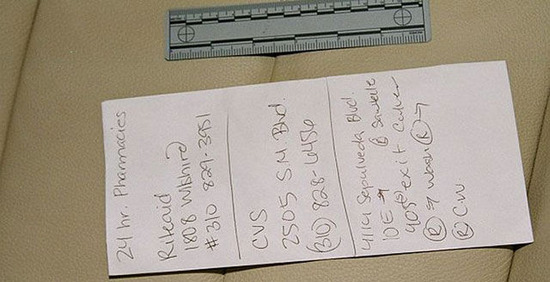 24 hr. Pharmacies
Riteaid
1808 Wilshire
#310 829-3951
CVS
2505 S.M Blvd.
(310) 828-6456
4114 Sepulveda Blvd.
10E → sawtelle
405 exit Culver
(R) → wash (R) →
(R) CVV